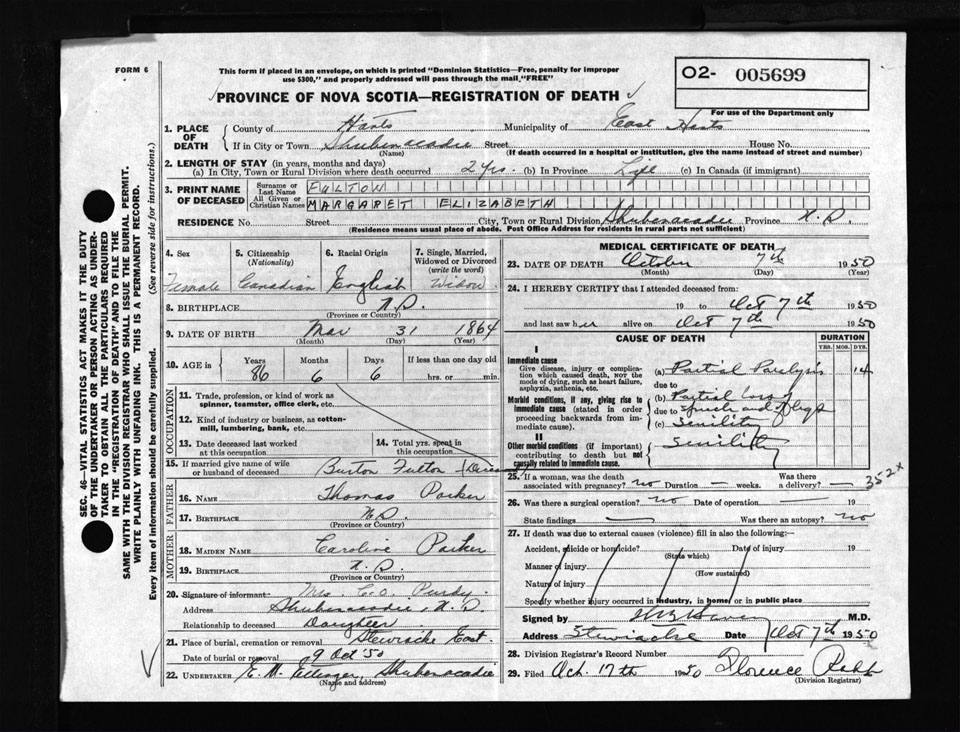 FORM 6
This form if placed in an envelope, on which is printed "Dominion Statistics—Free, penalty for improper
use $300," and properly addressed will pass through the mail "FREE"
O2- 005699
For use of the Department only
PROVINCE OF NOVA SCOTIA—REGISTRATION OF DEATH
1. PLACE OF DEATH
County of Hants Municipality of East Hants
If in City or Town Shubenacadie Street House No.
(Name) (If death occurred in a hospital or institution, give the name instead of street and number)
2. LENGTH OF STAY (in years, months and days)
(a) In City, Town or Rural Division where death occurred 2 yrs. (b) In Province Life (c) In Canada (if immigrant)
3. PRINT NAME OF DECEASED
Surname or Last Name FULTON
All Given or Christian Names MARGARET ELIZABETH
RESIDENCE No. Street City, Town or Rural Division Shubenacadie Province N.S.
(Residence means usual place of abode. Post Office Address for residents in rural parts not sufficient)
SEC. 46—VITAL STATISTICS ACT MAKES IT THE DUTY
OF THE UNDERTAKER OR PERSON ACTING AS UNDER-
TAKER TO OBTAIN ALL THE PARTICULARS REQUIRED
IN THE "REGISTRATION OF DEATH" AND TO FILE THE
SAME WITH THE DIVISION REGISTRAR WHO SHALL ISSUE THE BURIAL PERMIT.
WRITE PLAINLY WITH UNFADING INK. THIS IS A PERMANENT RECORD.
Every item of information should be carefully supplied. (See reverse side for instructions.)
4. Sex 5. Citizenship (Nationality) 6. Racial Origin 7. Single, Married, Widowed or Divorced (write the word)
Female Canadian English Widow
8. BIRTHPLACE N.S.
(Province or Country)
9. DATE OF BIRTH Mar 31 1864
(Month) (Day) (Year)
10. AGE in Years Months Days If less than one day old
86 6 6 hrs. or min.
OCCUPATION
11. Trade, profession, or kind of work as
spinner, teamster, office clerk, etc.
12. Kind of industry or business, as cotton-
mill, lumbering, bank, etc.
13. Date deceased last worked
at this occupation
14. Total yrs. spent in
this occupation
15. If married give name of wife
or husband of deceased Burton Fulton
FATHER
16. NAME Thomas Parker
17. BIRTHPLACE N.S.
(Province or Country)
MOTHER
18. MAIDEN NAME Caroline Parker
19. BIRTHPLACE N.S.
(Province or Country)
20. Signature of informant Mrs. C.O. Purdy
Address Shubenacadie, N.S
Relationship to deceased Daugheer
21. Place of burial, cremation or removal Stewiacke East
Date of burial or removal 9 Oct '50
22. UNDERTAKER E. M. Ettinger, Shubenacadie
(Name and address)
MEDICAL CERTIFICATE OF DEATH
23. DATE OF DEATH October 7th 1950
(Month) (Day) (Year)
24. I HEREBY CERTIFY that I attended deceased from:
19 to Oct 7th 1950
and last saw her alive on Oct 7th 1950
CAUSE OF DEATH DURATION
YRS. MOS. DYS.
I
Immediate cause
Give disease, injury or complica-
tion which caused death, NOT the
mode of dying, such as heart failure,
asphyxia, asthenia, etc.
(a) Partial Paralysis 14
due to
Morbid conditions, if any, giving rise to
immediate cause (stated in order
proceeding backwards from im-
mediate cause).
(b) Partial loss of
due to speech and of legs
(c) Senility
II
Other morbid conditions (if important)
contributing to death but not
causally related to immediate cause.
Senility
25. If a woman, was the death
associated with pregnancy? no Duration — weeks. Was there
a delivery? — 352x
26. Was there a surgical operation? no Date of operation 19
State findings — Was there an autopsy? no
27. If death was due to external causes (violence) fill in also the following:—
Accident, suicide or homicide? Date of injury 19
(State which)
Manner of injury
(How sustained)
Nature of injury
Specify whether injury occurred in industry, in home or in public place
Signed by M.D.
Address Stewiacke Date Oct 7th 1950
28. Division Registrar's Record Number
29. Filed Oct. 17th 1950 Florence Robb
(Division Registrar)